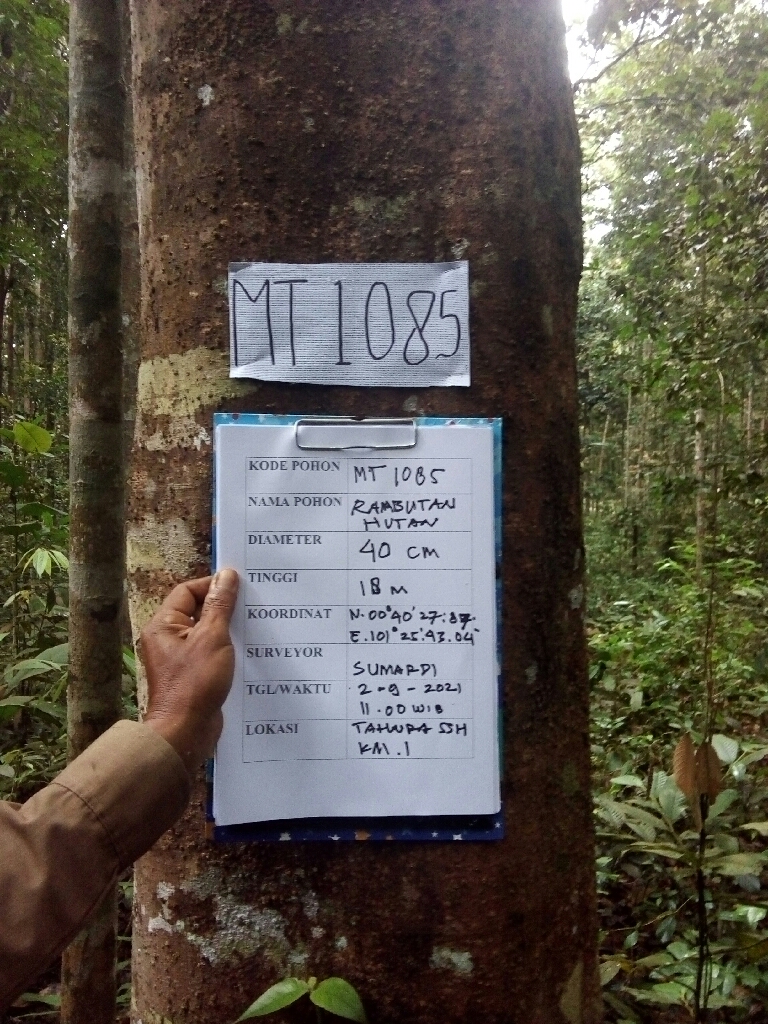 MT 1085
KODE POHON MT 1085
NAMA POHON RAMBUTAN
HUTAN
DIAMETER 40 CM
TINGGI 18 M
KOORDINAT N.00°40'27.87"
E.101°25'.43.04"
SURVEYOR SUMARDI
TGL/WAKTU 2-9-2021
11.00 WIB
LOKASI TAHURA SSH
KM.1